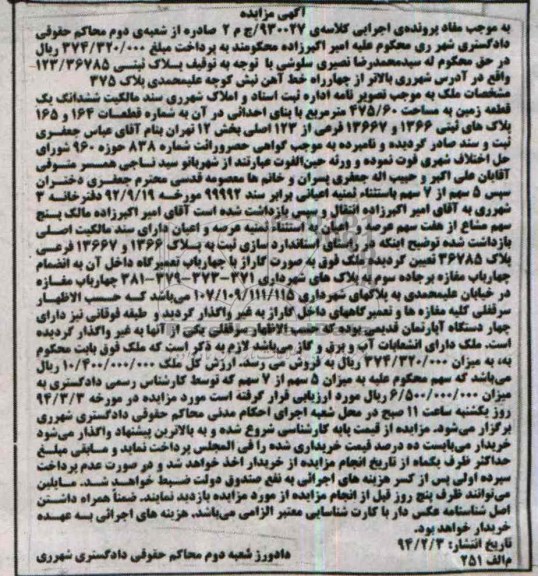 آگهی مزایده
به موجب مفاد پرونده‌ی اجرایی کلاسه‌ی ۹۳۰۰۲۷/ج م ۲ صادره از شعبه‌ی دوم محاکم حقوقی
دادگستری شهر ری محکوم علیه امیر اکبرزاده محکومند به پرداخت مبلغ ۳۷۴/۳۲۰/۰۰۰ ریال
در حق محکوم له سیدمحمدرضا نصیری سلوشی با توجه به توقیف پلاک ثبتی ۱۲۳/۳۶۷۸۵
واقع در آدرس شهرری بالاتر از چهارراه خط آهن نبش کوچه علیمحمدی پلاک ۳۷۵
مشخصات ملک به موجب تصویر نامه اداره ثبت اسناد و املاک شهرری سند مالکیت ششدانگ یک
قطعه زمین به مساحت ۴۷۵/۶۰ مترمربع با بنای احداثی در آن به شماره قطعات ۱۶۴ و ۱۶۵
پلاک های ثبتی ۱۳۶۶ و ۱۳۶۶۷ فرعی از ۱۲۳ اصلی بخش ۱۲ تهران بنام آقای عباس جعفری
ثبت و سند صادر گردیده و نامبرده به موجب گواهی حصروراثت شماره ۸۳۸ حوزه ۹۶۰ شورای
حل اختلاف شهری فوت نموده و ورثه حین‌الفوت عبارتند از شهربانو سید ناجی همسر متوفی
آقایان علی اکبر و حبیب اله جعفری پسران و خانم ها معصومه قدسی محترم جعفری دختران
سپس ۵ سهم از ۷ سهم باستثناء ثمنیه اعیانی برابر سند ۹۹۹۹۲ مورخه ۹۲/۹/۱۹ دفترخانه ۳
شهرری به آقای امیر اکبرزاده انتقال و سپس بازداشت شده است آقای امیر اکبرزاده مالک پنج
سهم مشاع از هفت سهم عرصه و اعیان به استثناء ثمنیه عرصه و اعیان دارای سند مالکیت اصلی
بازداشت شده توضیح اینکه در راستای استاندارد سازی ثبت به پلاک ۱۳۶۶ و ۱۳۶۶۷ فرعی
پلاک ۳۶۷۸۵ تعیین گردیده ملک فوق به صورت گاراژ با چهارباب تعمیرگاه داخل آن به انضمام
چهارباب مغازه برجاده سوم با پلاک های شهرداری ۳۷۱-۳۷۳-۳۷۹-۳۸۱ چهارباب مغازه
در خیابان علیمحمدی به پلاکهای شهرداری ۱۰۷/۱۰۹/۱۱۱/۱۱۵ می‌باشد که حسب الاظهار
سرقفلی کلیه مغازه ها و تعمیرگاههای داخل گاراژ به غیر واگذار گردید و طبقه فوقانی نیز دارای
چهار دستگاه آپارتمان قدیمی بوده که حسب الاظهار سرقفلی یکی از آنها به غیر واگذار گردیده
است. ملک دارای انشعابات آب و برق و گاز می‌باشد لازم به ذکر است که ملک فوق بابت محکوم
به، به میزان ۳۷۴/۳۲۰/۰۰۰ ریال به فروش می رسد. ارزش کل ملک ۱۰/۴۰۰/۰۰۰/۰۰۰ ریال
می‌باشد که سهم محکوم علیه به میزان ۵ سهم از ۷ سهم که توسط کارشناس رسمی دادگستری به
میزان ۶/۵۰۰/۰۰۰/۰۰۰ ریال مورد ارزیابی قرار گرفته است مورد مزایده در مورخه ۹۴/۳/۳
روز یکشنبه ساعت ۱۱ صبح در محل شعبه اجرای احکام مدنی محاکم حقوقی دادگستری شهرری
برگزار می‌شود. مزایده از قیمت پایه کارشناسی شروع شده و به بالاترین پیشنهاد واگذار می‌شود
خریدار می‌بایست ده درصد قیمت خریداری شده را فی المجلس پرداخت نماید و مابقی مبلغ
حداکثر ظرف یکماه از تاریخ انجام مزایده از خریدار اخذ خواهد شد و در صورت عدم پرداخت
سپرده اولی پس از کسر هزینه های اجرائی به نفع صندوق دولت ضبط خواهد شد. مایلین
می‌توانند ظرف پنج روز قبل از انجام مزایده از مورد مزایده بازدید نمایند. ضمناً همراه داشتن
اصل شناسنامه عکس دار یا کارت شناسایی معتبر الزامی می‌باشد. هزینه های اجرائی به عهده
خریدار خواهد بود.
تاریخ انتشار: ۹۴/۲/۳
م‌الف ۲۵۱ دادورز شعبه دوم محاکم حقوقی دادگستری شهرری